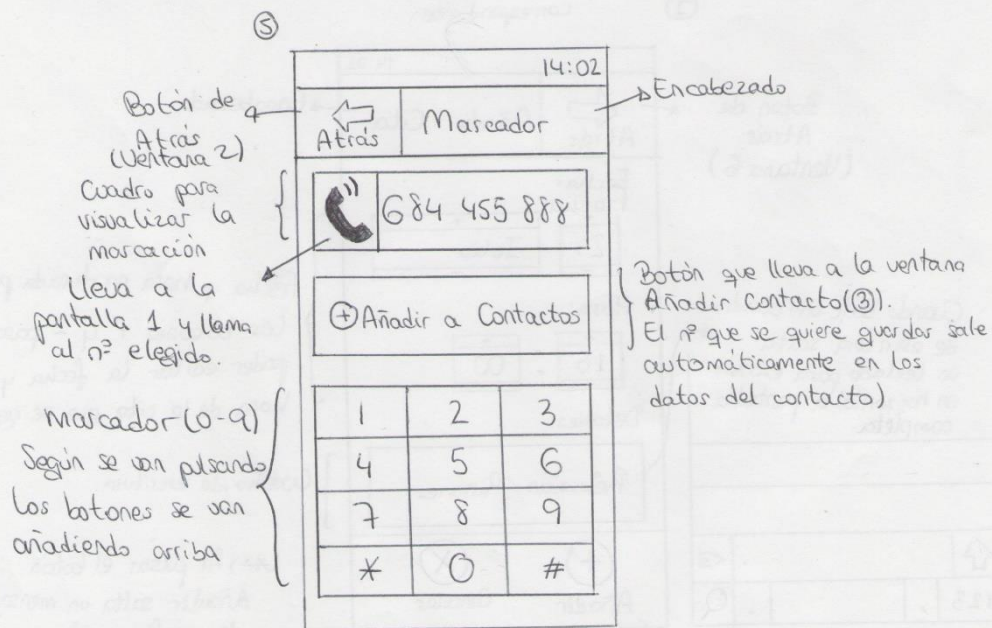 5
14:02
Atrás
Marcador
Encabezado
Botón de
Atrás
(Ventana 2)
Cuadro para
visualizar la
marcación
684 455 888
Lleva a la
pantalla 1 y llama
al nº elegido.
+ Añadir a Contactos
Botón que lleva a la ventana
Añadir Contacto (3).
El nº que se quiere guardar sale
automáticamente en los
datos del contacto)
Marcador (0-9)
Según se van pulsando
los botones se van
añadiendo arriba
1 2 3
4 5 6
7 8 9
* 0 #